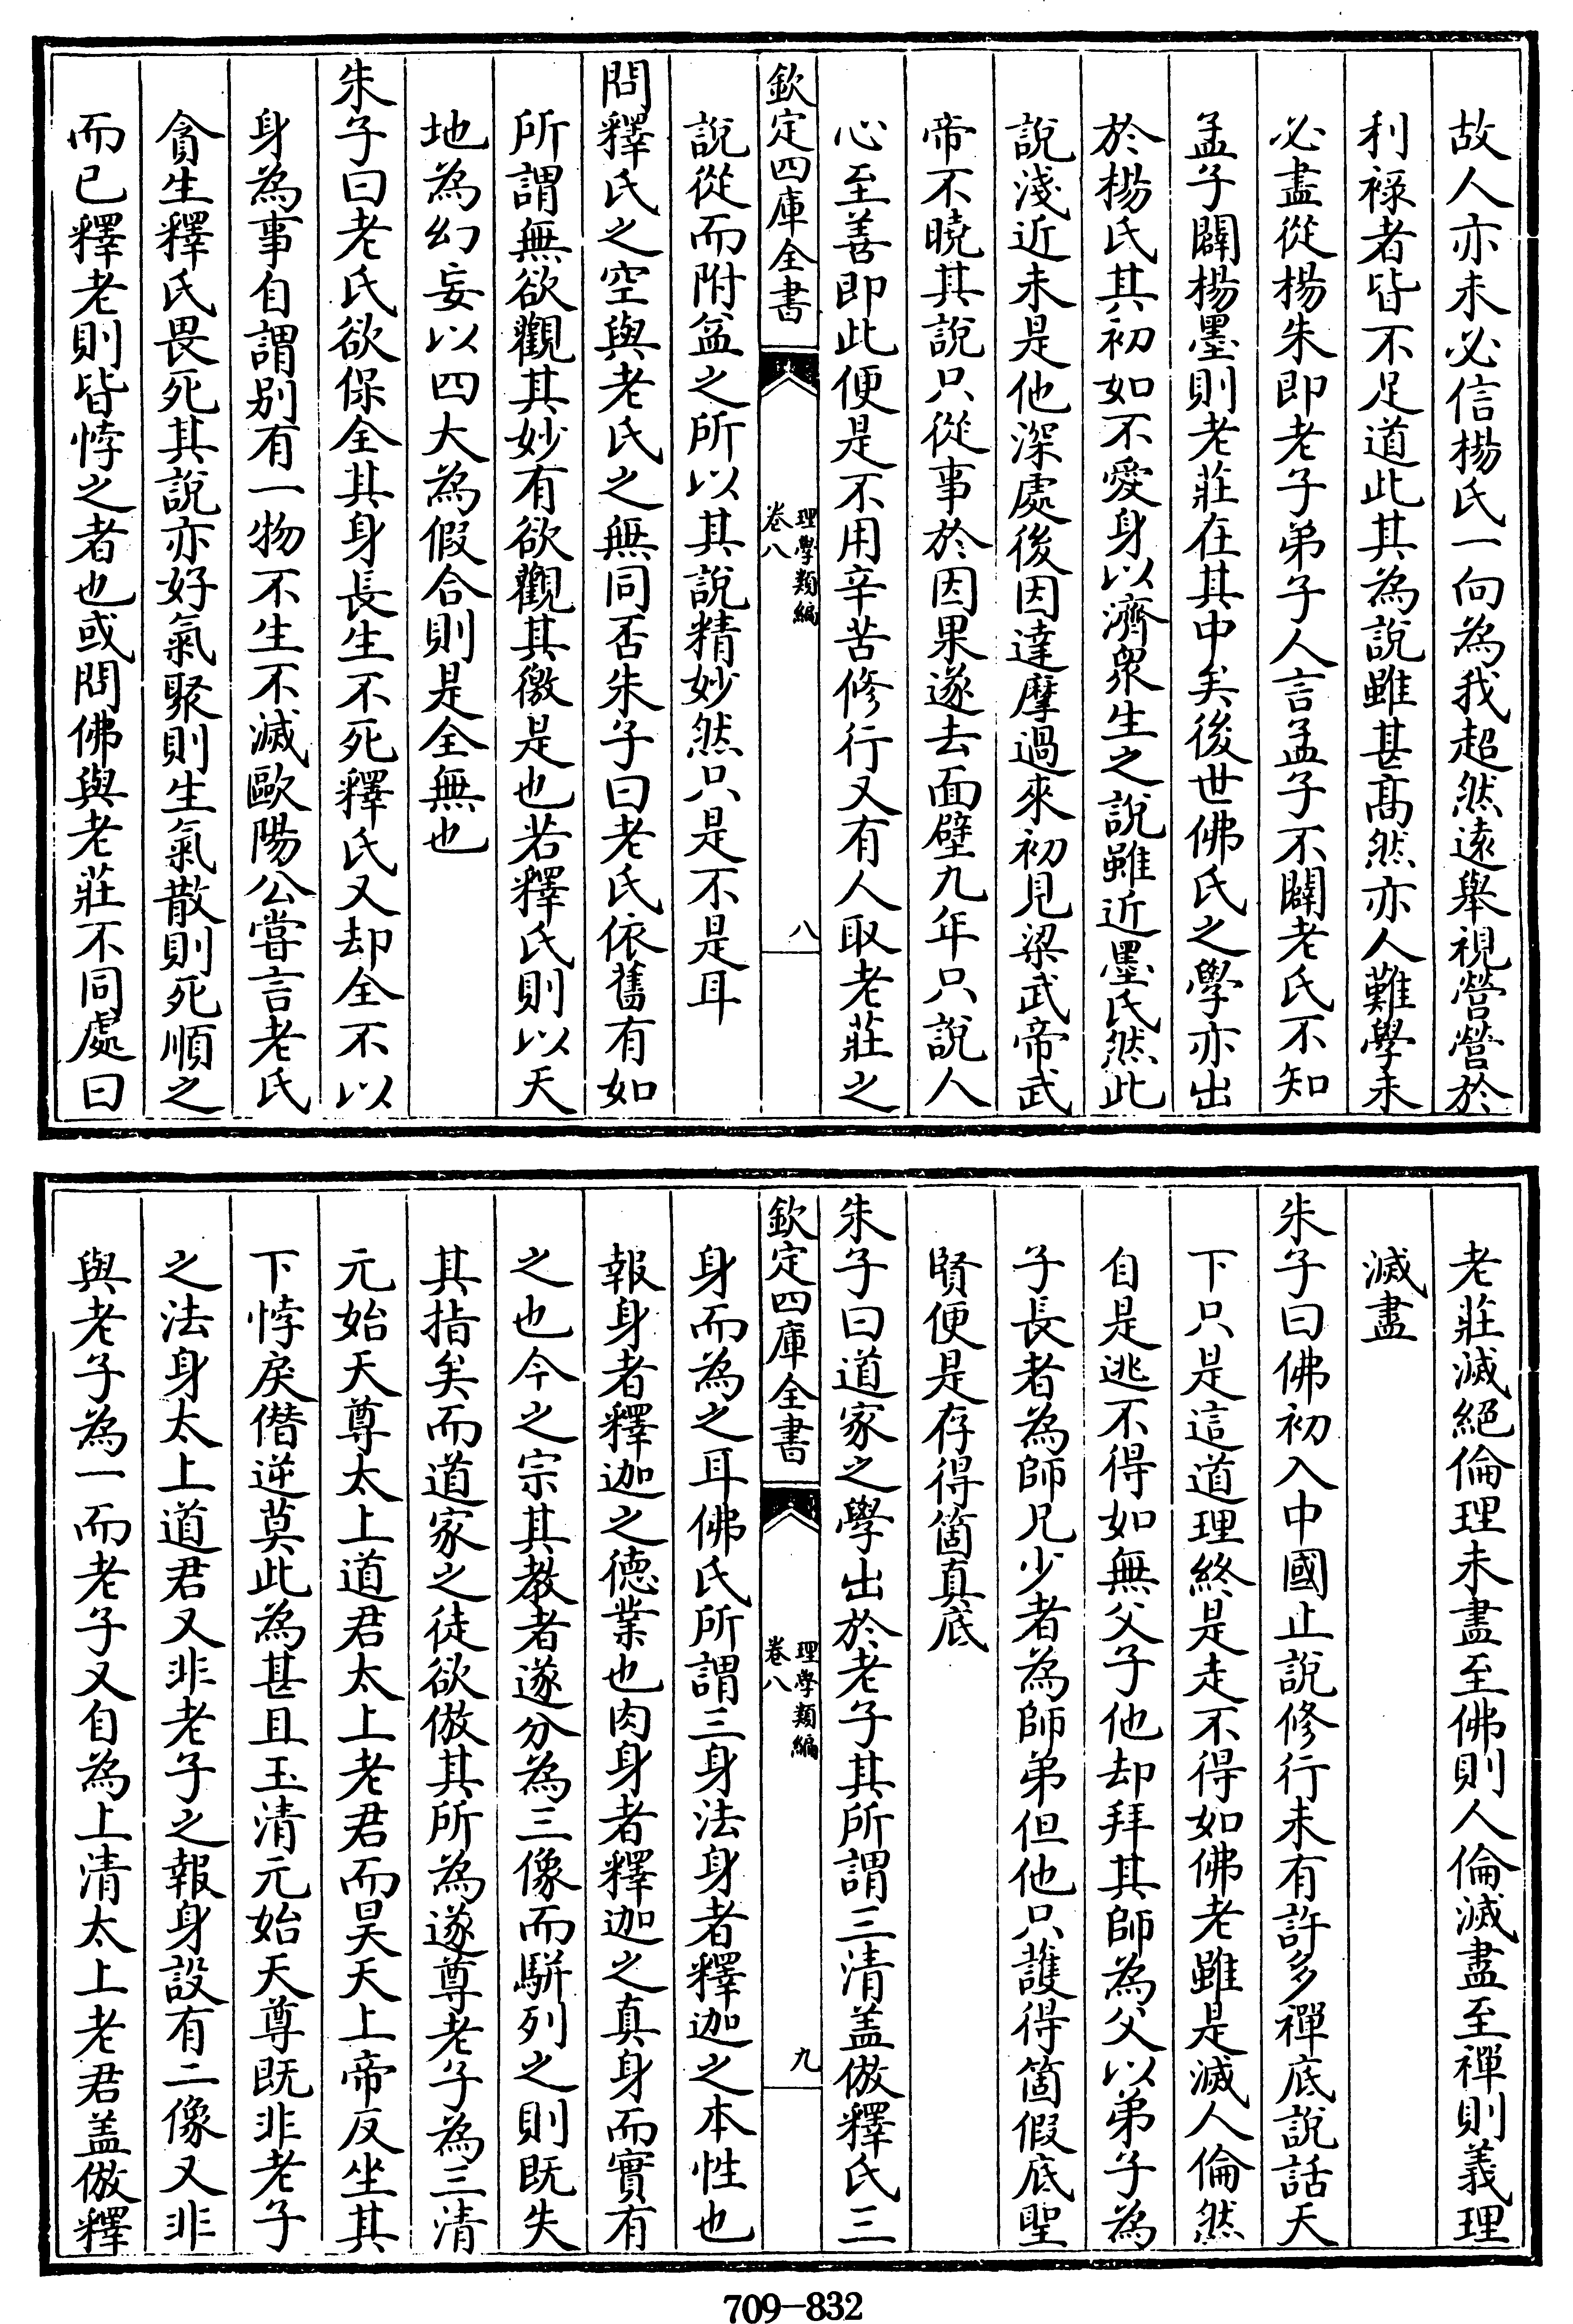 故人亦未必信楊氏一向為我超然逺舉視營營於
利祿者皆不足道此其為說雖甚髙然亦人難學未
必盡從楊朱即老子弟子人言孟子不闢老氏不知
孟子闢楊墨則老莊在其中矣後世佛氏之學亦出
於楊氏其初如不愛身以濟衆生之說雖近墨氏然此
說淺近未是他深處後因達摩過來初見梁武帝武
帝不曉其說只從事於因果遂去面壁九年只說人
心至善即此便是不用辛苦修行又有人取老莊之
欽定四庫全書
理學類編
卷八
八
說從而附益之所以其說精妙然只是不是耳
問釋氏之空與老氏之無同否朱子曰老氏依舊有如
所謂無欲觀其妙有欲觀其徼是也若釋氏則以天
地為幻妄以四大為假合則是全無也
朱子曰老氏欲保全其身長生不死釋氏又却全不以
身為事自謂别有一物不生不滅歐陽公嘗言老氏
貪生釋氏畏死其說亦好氣聚則生氣散則死順之
而已釋老則皆悖之者也或問佛與老莊不同處曰
老莊滅絕倫理未盡至佛則人倫滅盡至禪則義理
滅盡
朱子曰佛初入中國止說修行未有許多禪底說話天
下只是這道理終是走不得如佛老雖是滅人倫然
自是逃不得如無父子他却拜其師為父以弟子為
子長者為師兄少者為師弟但他只䕶得箇假底聖
賢便是存得箇真底
朱子曰道家之學出於老子其所謂三清盖倣釋氏三
欽定四庫全書
理學類編
卷八
九
身而為之耳佛氏所謂三身法身者釋迦之本性也
報身者釋迦之德業也肉身者釋迦之真身而實有
之也今之宗其教者遂分為三像而駢列之則既失
其指矣而道家之徒欲倣其所為遂尊老子為三清
元始天尊太上道君太上老君而昊天上帝反坐其
下悖戾僭逆莫此為甚且玉清元始天尊既非老子
之法身太上道君又非老子之報身設有二像又非
與老子為一而老子又自為上清太上老君盖倣釋
709-832